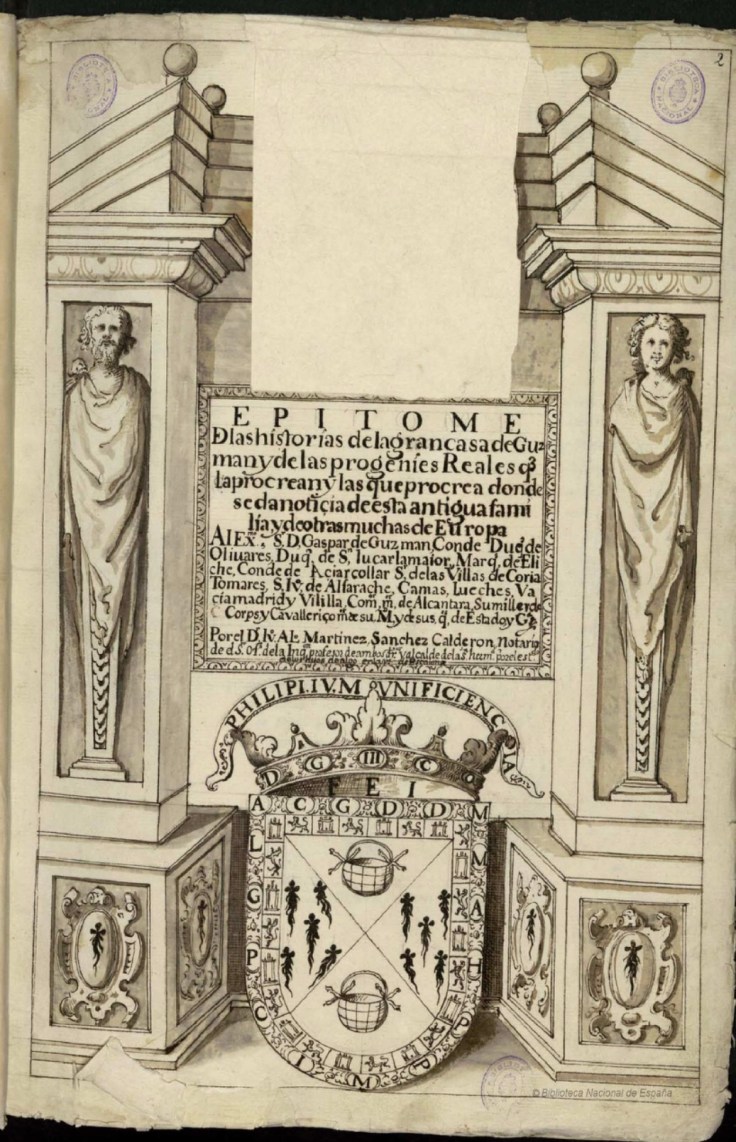 2
BIBLIOTECA NACIONAL
BIBLIOTECA NACIONAL
EPITOME
Dlas historias de la gran casa de Guz
man y de las progenies Reales q
la procrean y las que procrea donde
se da noticia de esta antigua fami
lia y de otras muchas de Europa
Al Ex. S. D. Gaspar de Guzman Conde Duq de
Oliuares, Duq. de S. lucar lamaior, Marq. de Eli
che, Conde de Aciarcollar S. de las Villas de Coria
Tomares, S. Iv. de Alfarache, Camas, Lueches, Va
ciamadrid y Vililla, Com. m. de Alcantara, Sumiller de
Corps y Cavalleriço m. de su M. y de sus q. de Estado y G.
Por el D. Martinez, Sanchez Calderon, Notario
de el S. Of. de la Inq.
PHILIP. I.IV. MUNIFICIENCIA
D G III C O
F E I
A C G D D M
L
G
P
O
I
M
P
P
H
A
M
© Biblioteca Nacional de España